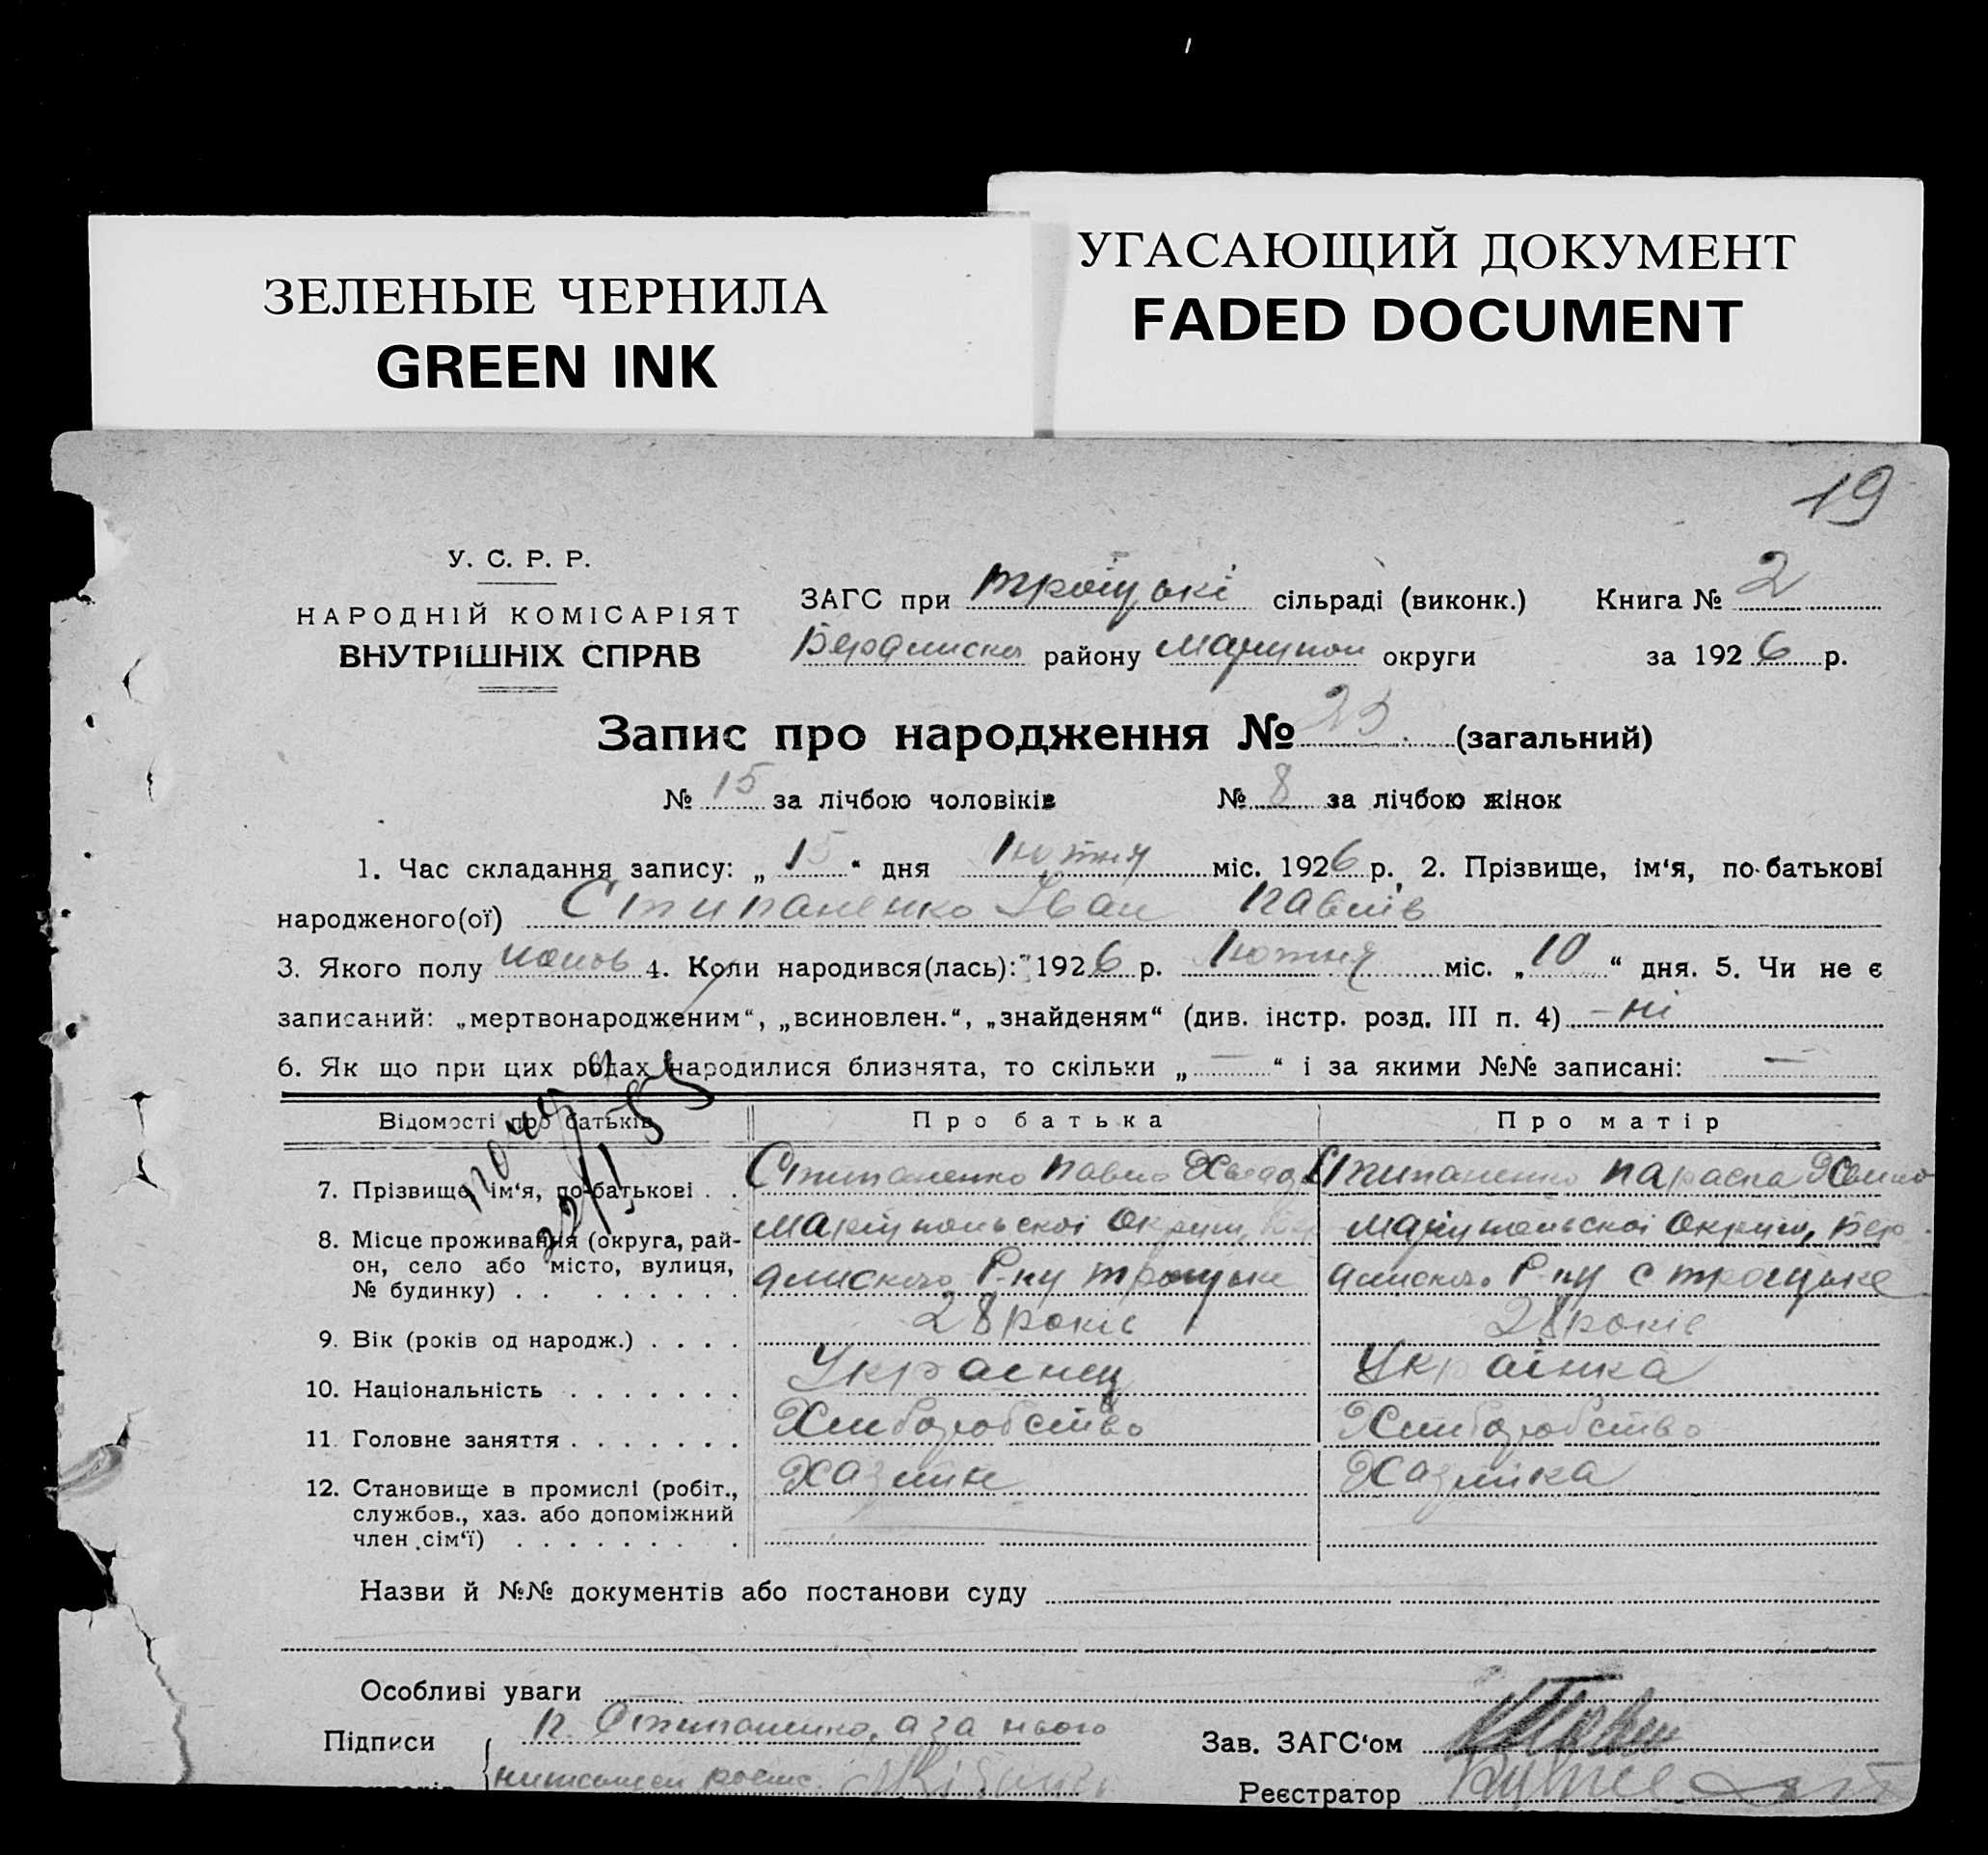 ЗЕЛЕНЫЕ ЧЕРНИЛА
GREEN INK
УГАСАЮЩИЙ ДОКУМЕНТ
FADED DOCUMENT
19
У. С. Р. Р.
НАРОДНІЙ КОМІСАРІЯТ
ВНУТРІШНІХ СПРАВ
ЗАГС при троіцькі сільраді (виконк.) Книга № 2
району Маріупол округи за 1926 р.
Запис про народження № 23. (загальний)
№ 15 за лічбою чоловіків № 8 за лічбою жінок
1. Час складання запису: „15“ дня Лютня міс. 1926 р. 2. Прізвище, ім‘я, по-батькові
народженого(ої) Стипаненко Іван Павлів
3. Якого полу 4. Коли народився(лась): 1926 р. Лютня міс. „10“ дня. 5. Чи не є
записаний: „мертвонародженим“, „всиновлен.“, „знайденям“ (див. інстр. розд. III п. 4) – ні
6. Як що при цих родах народилися близнята, то скільки „ — “ і за якими №№ записані: —
Відомості про батьків Про батька Про матір
7. Прізвище, ім‘я, по-батькові . . Стипаненко Павло Стипаненко Параска
8. Місце проживання (округа, рай- Маріупольскоі Округи, Маріупольскоі Округи, Бер
он, село або місто, вулиця, дянского Р-ну троіцьке дянского Р-ну с троіцьке
№ будинку) . . . . . . . .
9. Вік (років од народж.) . . . . 28 років 28 років
10. Національність . . . . . . . Украінец Украінка
11. Головне заняття . . . . . . . Хлиборобство Хлиборобство
12. Становище в промислі (робіт., Хазяін Хазяйка
службов., хаз. або допоміжний
член сім‘ї) . . . . . . . .
Назви й №№ документів або постанови суду
Особливі уваги
Підписи П. Стипаненко, а за нього
Зав. ЗАГС‘ом
Реєстратор